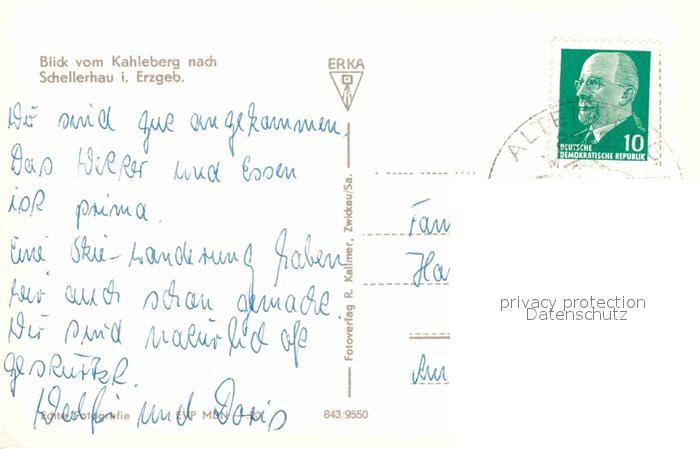 Blick vom Kahleberg nach
Schellerhau i. Erzgeb.
ERKA
Wir sind gut angekommen.
Das Wetter und Essen
ist prima.
Eine Skie-Wanderung haben
wir auch schon gemacht.
Wir sind natürlich oft
gestürtzt.
und Doris
Echte Fotografie EVP MDN -.20
843/9550
Fotoverlag R. Kallmer, Zwickau/Sa.
10
DEUTSCHE
DEMOKRATISCHE REPUBLIK
ALTE
Fam
Ha
privacy protection
Datenschutz